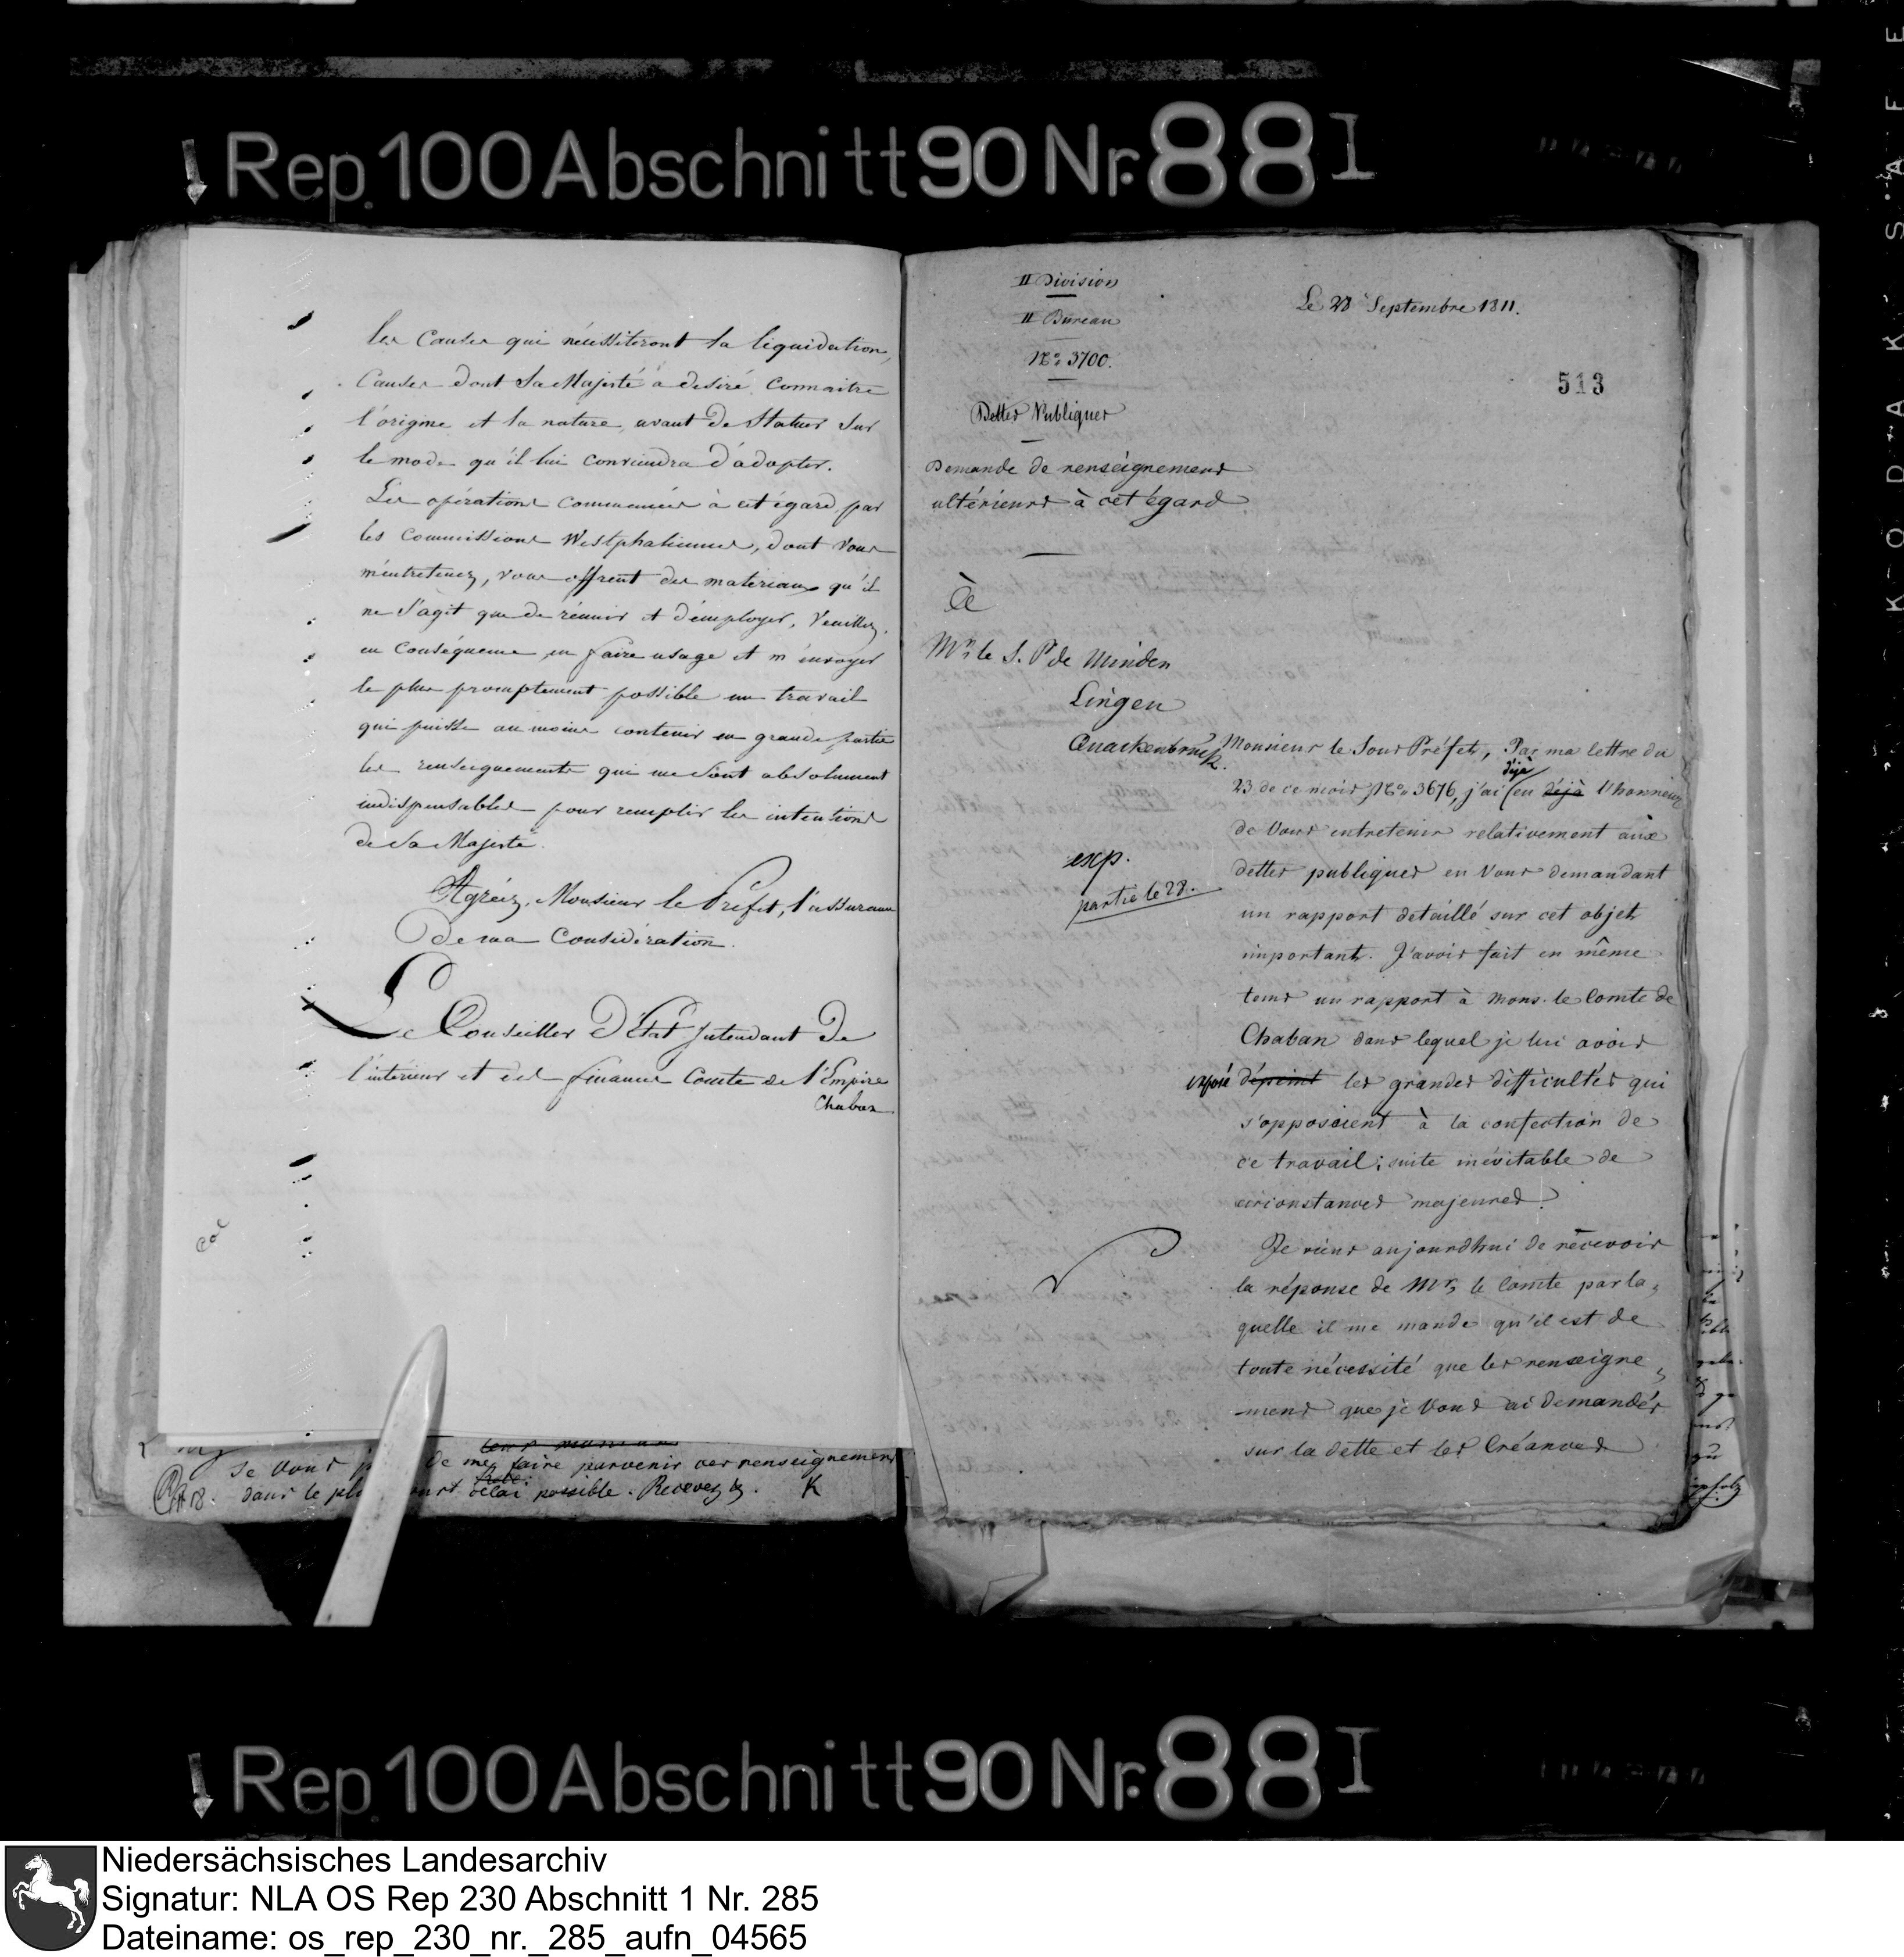 Rep. 100 Abschnitt 90 Nr. 88 I
les causes qui nécessiteront la liquidation,
Causes dont Sa Majesté a desiré connaitre
l'origine et la nature, avant de Statuer Sur
le mode qu'il lui conviendra d'adopter.
Les opérations commencées à cet égard, par
les Commissions Westphaliennes, dont Vous
m'entretenez, vous offrent des matériaux qu'il
ne S'agit que de réunir et d'employer, Veuillez,
en Conséquence, en faire usage et m'envoyer
le plus promptement possible un travail
qui puisse au moins contenir en grande partie
les renseignements qui me Sont absolument
indispensables pour remplir les intentions
de Sa Majesté.
Agréez, Monsieur le Préfet, l'assurance
De ma Considération.
Le Conseiller D'État Intendant De
l'intérieur et des finances Comte de l'Empire
Chaban
Je Vous de me faire parvenir ces renseignemens
dans le plus court délai possible. Recevez &. K
II Division
II Bureau
Nº 3700.
Dettes Publiques
Demande de renseignemens
ultérieurs à cet égard
Le 28 Septembre 1811.
513
À
Mr. le S. P. de Minden
Lingen
Quackenbrück.
exp.
partie le 28.
Monsieur le Sous Préfet, Par ma lettre du
déjà
23 de ce mois, Nº 3676, j'ai eu déjà l'honneur
de Vous entretenir relativement aux
dettes publiques en Vous demandant
un rapport détaillé sur cet objet
important. J'avois fait en même
tems un rapport à Mons. le Comte de
Chaban dans lequel je lui avois
exposé dépeint les grandes difficultés qui
s'opposoient à la confection de
ce travail; suite inévitable de
circonstances majeures.
Je viens aujourdhui de recevoir
la réponse de Mr. le Comte par la,
quelle il me mande qu'il est de
toute nécessité que les renseigne,
-mens que je Vous ai demandés
sur la dette et les Créances
Rep. 100 Abschnitt 90 Nr. 88 I
Niedersächsisches Landesarchiv
Signatur: NLA OS Rep 230 Abschnitt 1 Nr. 285
Dateiname: os_rep_230_nr._285_aufn_04565